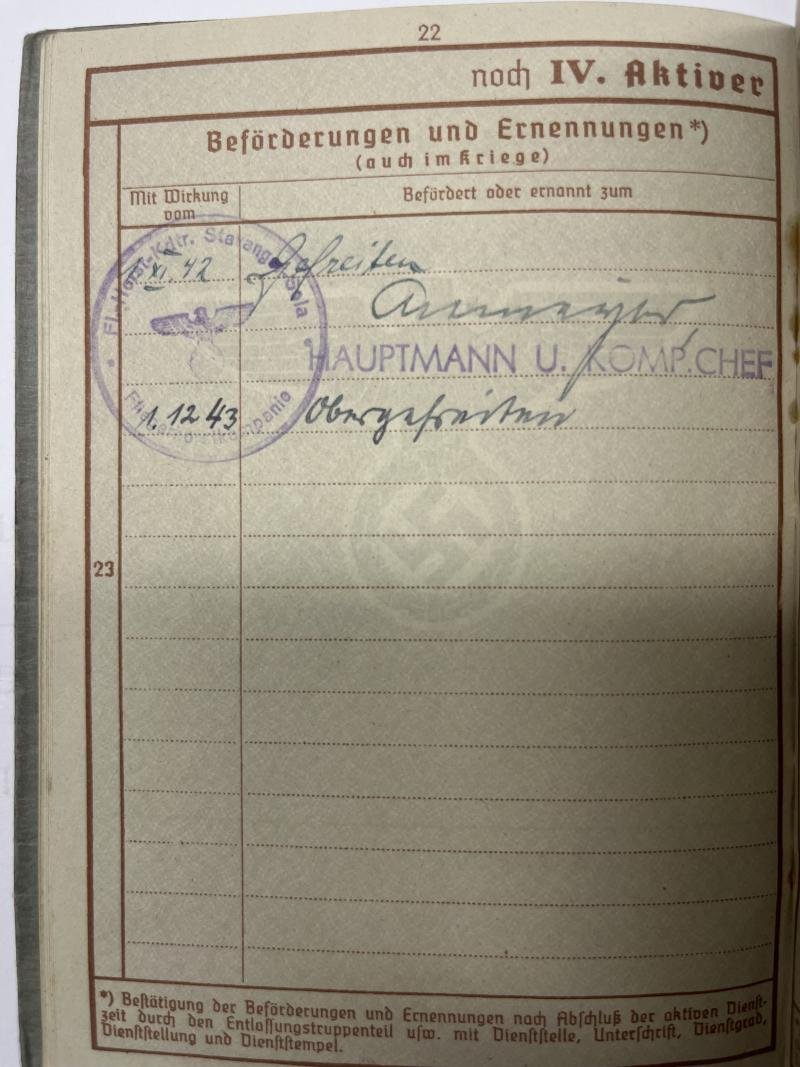 22
noch IV. Aktiver
Beförderungen und Ernennungen*)
(auch im Kriege)
Mit Wirkung vom
Befördert oder ernannt zum
Fl. Horst-Kdtr. Stavanger Sola
1. XI. 42 Gefreiten
HAUPTMANN U. KOMP.CHEF
1. 12 43 Obergefreiten
23
*) Bestätigung der Beförderungen und Ernennungen nach Abschluß der aktiven Dienst-
zeit durch den Entlassungstruppenteil usw. mit Dienststelle, Unterschrift, Dienstgrad,
Dienststellung und Dienststempel.